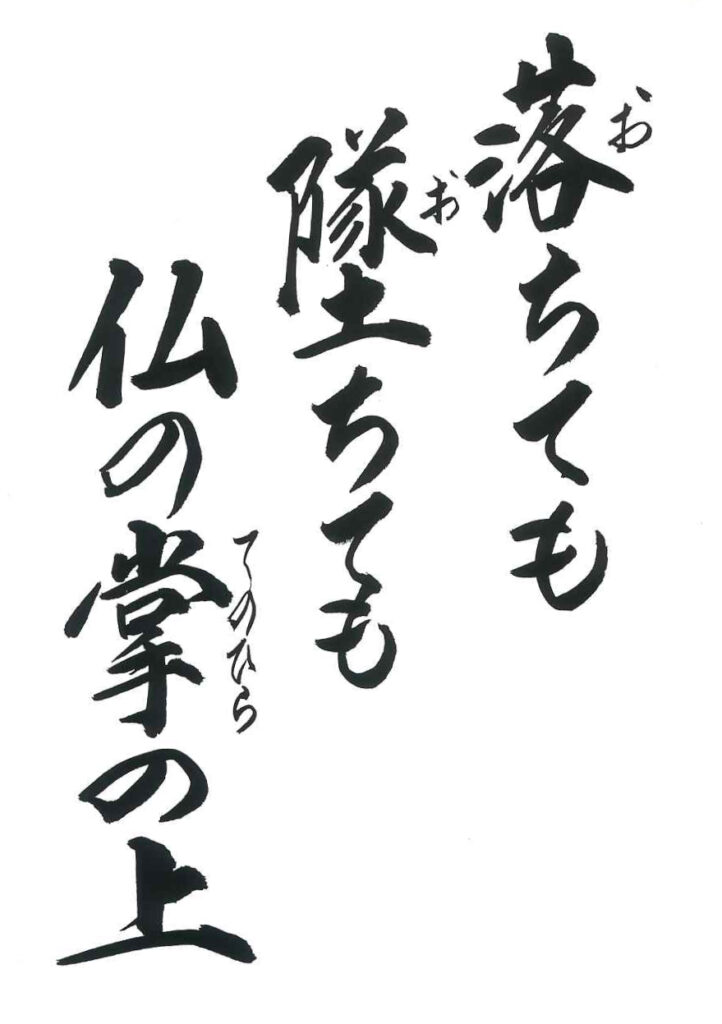 落ちても
お
墜ちても
お
仏の掌の上
てのひら